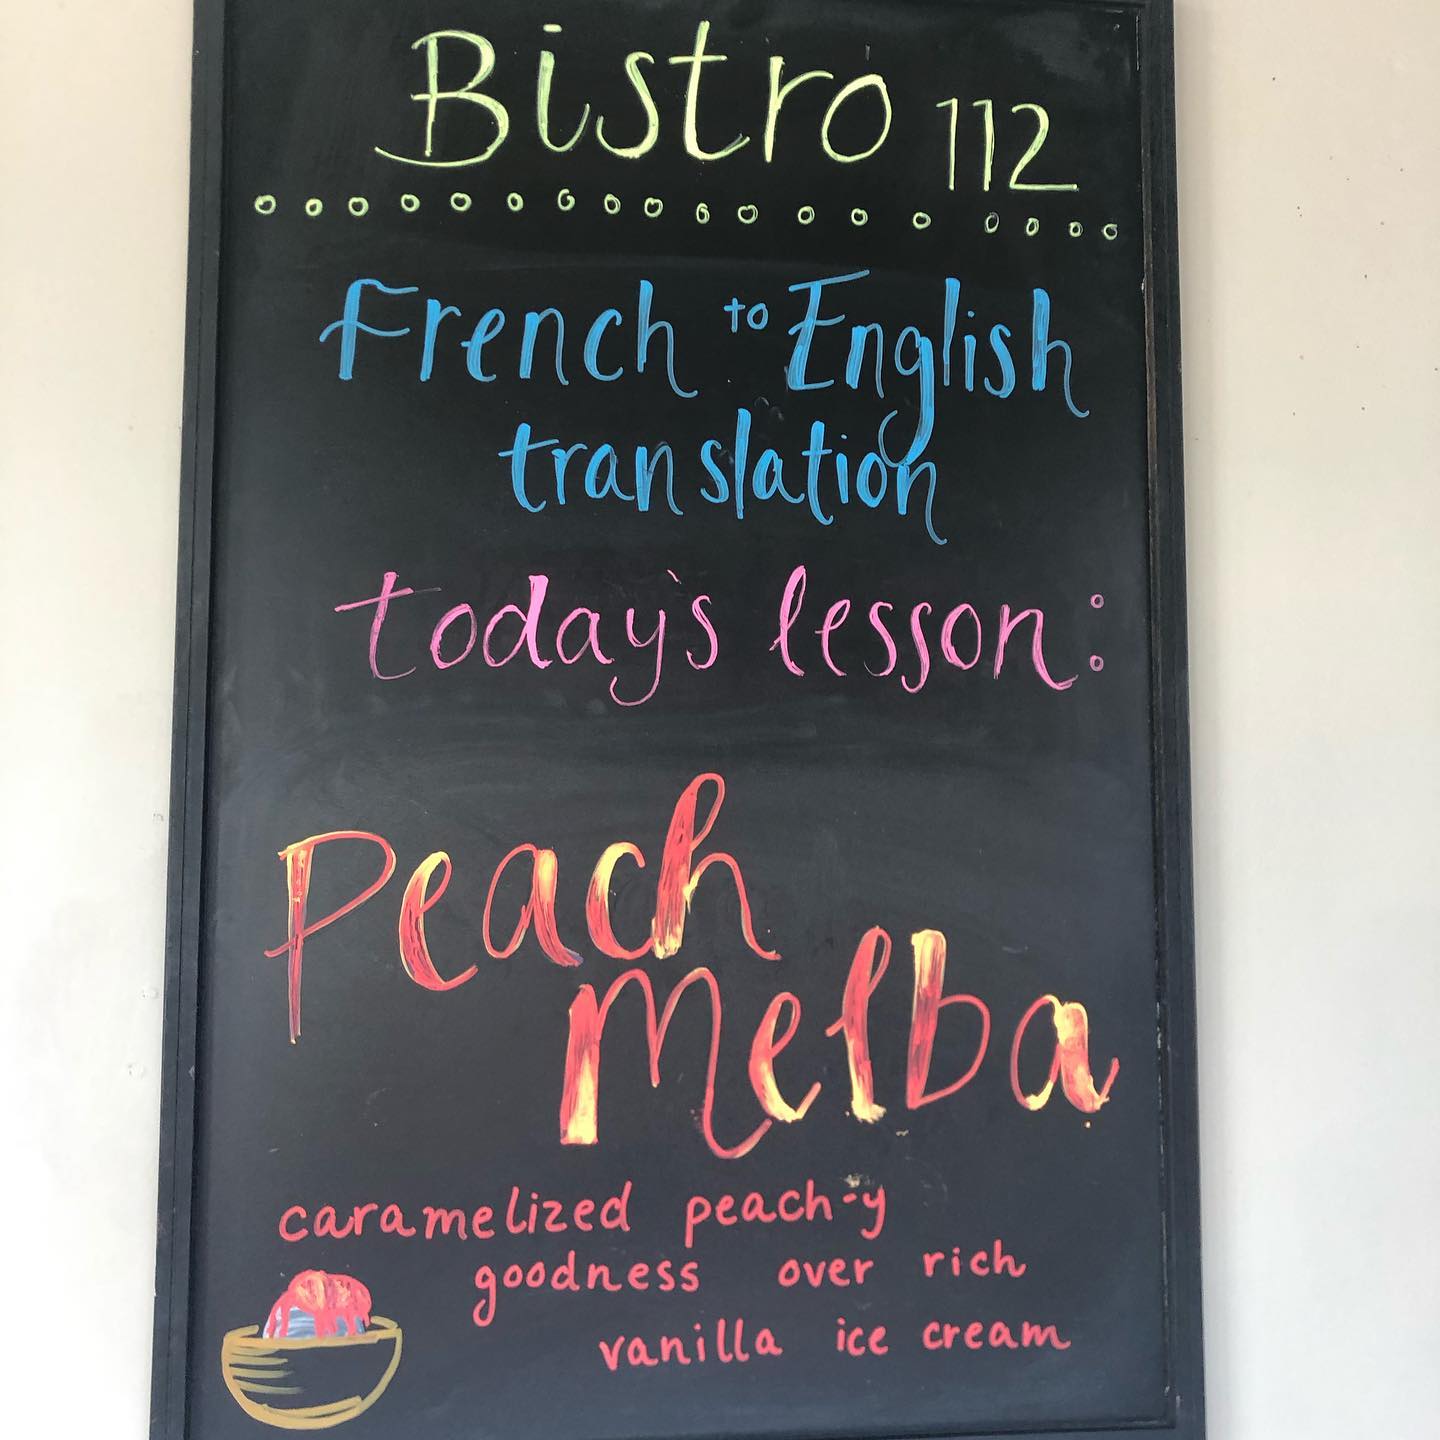 Bistro 112
French to English
translation
today's lesson:
Peach
Melba
caramelized peach-y
goodness over rich
vanilla ice cream